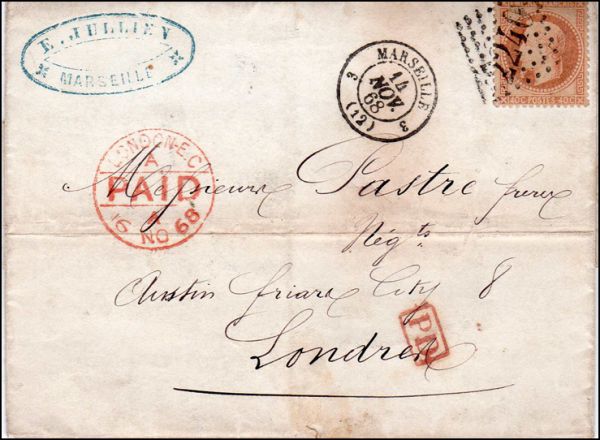 E. JULLIEN
MARSEILLE
MARSEILLE
3
14
NOV.
68
3
(12)
2240
40C POSTES 40C
LONDON-E.C
A
PAID
16 NO 68
Messieurs Pastre frères
Négts
Austin friars City 8
Londres
PD